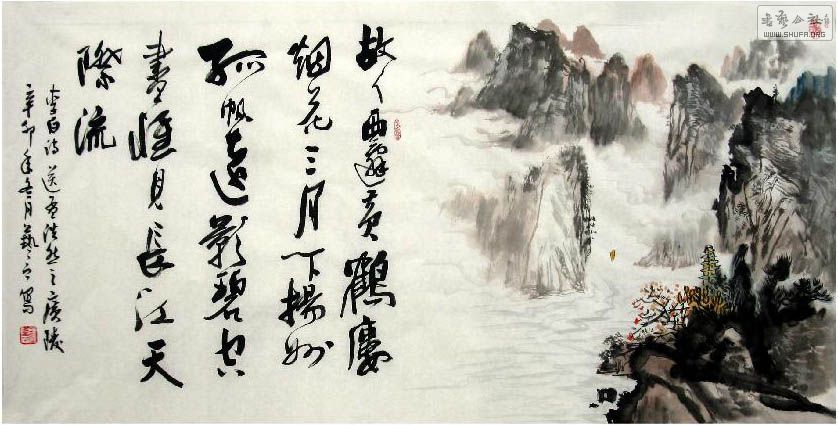 故人西辭黄鶴樓
烟花三月下揚州
孤帆遠影碧空
盡惟見長江天
際流
李白诗送孟浩然之廣陵
辛卯年冬月藝
書藝公社
WWW.SHUFA.ORG